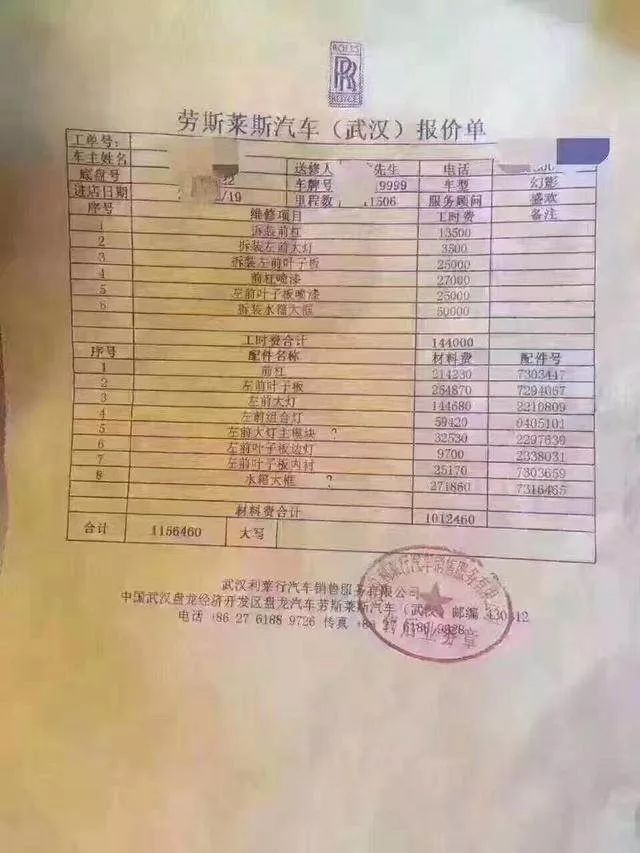 ROLLS
RR
ROYCE
劳斯莱斯汽车（武汉）报价单
工单号：
车主姓名 送修人 先生 电话
底盘号 22 车牌号 9999 车型 幻影
进店日期 /19 里程数 1506 服务顾问 盛欢
序号 维修项目 工时费 备注
1 拆装前杠 13500
2 拆装左前大灯 3500
3 拆装左前叶子板 25000
4 前杠喷漆 27000
5 左前叶子板喷漆 25000
6 拆装水箱大框 50000
工时费合计 144000
序号 配件名称 材料费 配件号
1 前杠 214230 7303447
2 左前叶子板 254870 7294067
3 左前大灯 144680 2210809
4 左前组合灯 59420 0405101
5 左前大灯主模块 ? 32530 2297639
6 左前叶子板边灯 9700 2338031
7 左前叶子板内衬 25170 7303659
8 水箱大框 ? 271860 7316465
材料费合计 1012460
合计 1156460 大写
武汉利莱行汽车销售服务有限公司
中国武汉盘龙经济开发区盘龙汽车劳斯莱斯汽车（武汉）邮编 430312
电话 +86 27 6188 9726 传真 +86 27 6186 9828